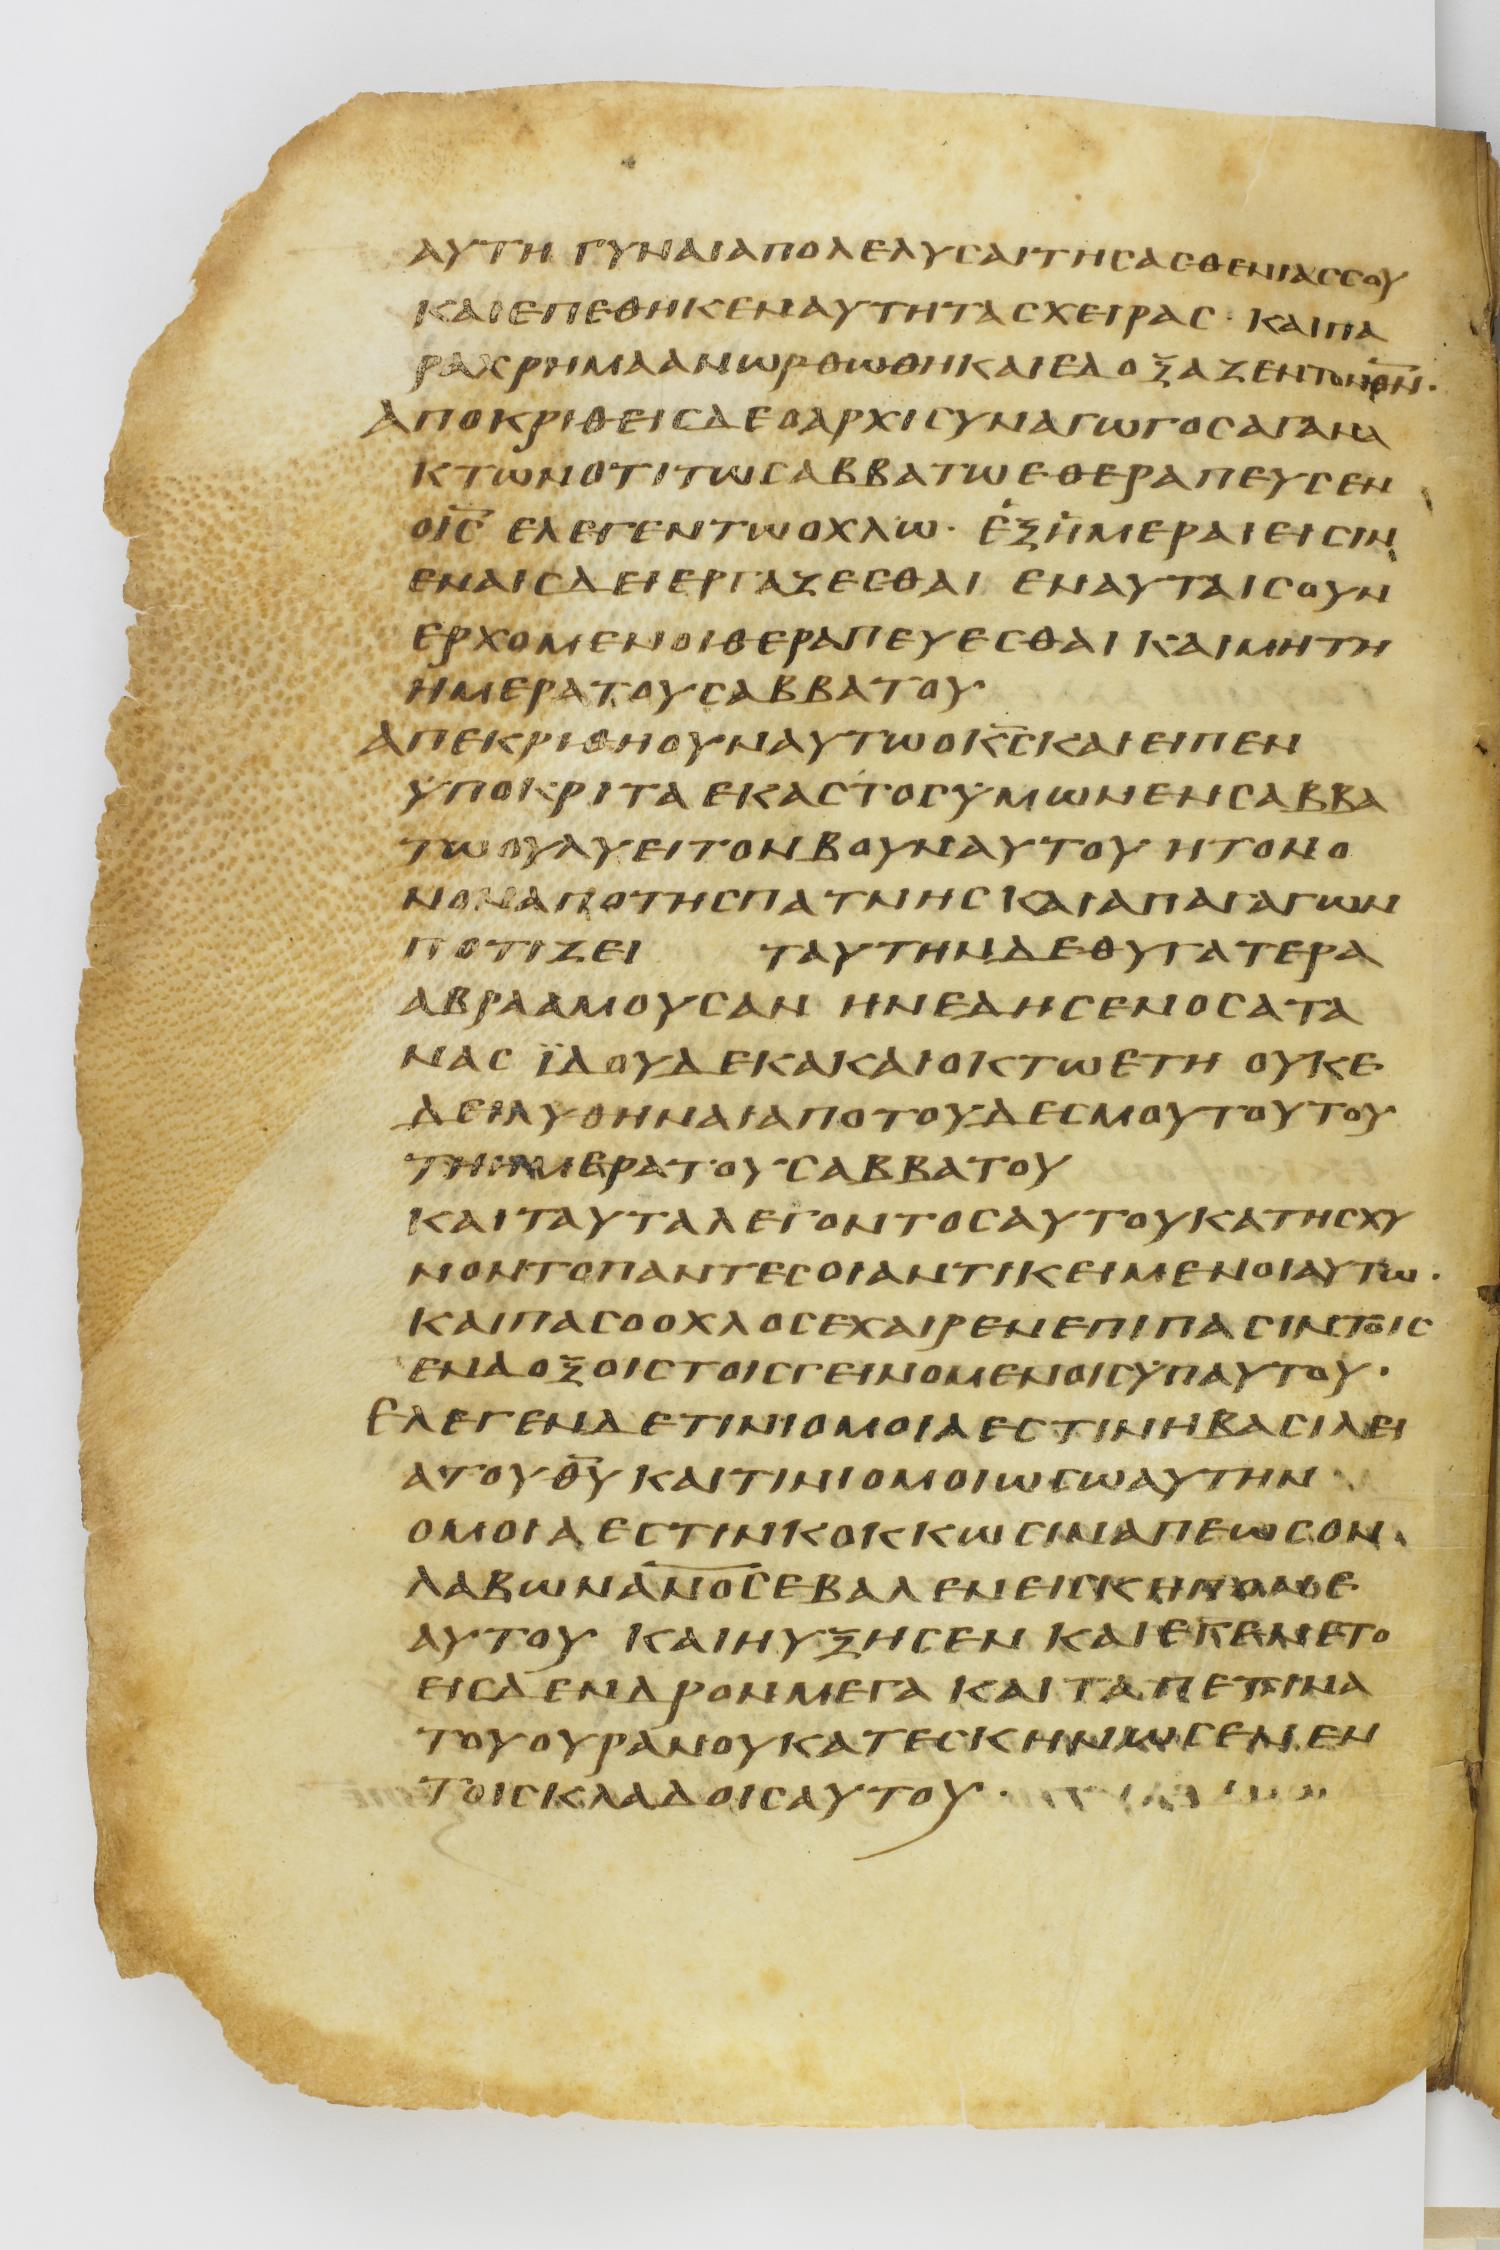 ΑΥΤΗ ΓΥΝΑΙΑΠΟΛΕΛΥΣΑΙΤΗΣΑΣΘΕΝΙΑΣΣΟΥ
ΚΑΙΕΠΕΘΗΚΕΝΑΥΤΗΤΑΣΧΕΙΡΑΣ· ΚΑΙΠΑ
ΡΑΧΡΗΜΑΑΝΩΡΘΩΘΗΚΑΙΕΔΟΞΑΖΕΝΤΟΝΘ̅Ν̅·
ΑΠΟΚΡΙΘΕΙΣΔΕΟΑΡΧΙΣΥΝΑΓΩΓΟΣΑΓΑΝΑ
ΚΤΩΝΟΤΙΤΩΣΑΒΒΑΤΩΕΘΕΡΑΠΕΥΣΕΝ
ΟΙ̅Σ̅ ΕΛΕΓΕΝΤΩΟΧΛΩ· ΕΞΗΜΕΡΑΙΕΙΣΙΝ
ΕΝΑΙΣΔΕΙΕΡΓΑΖΕΣΘΑΙ ΕΝΑΥΤΑΙΣΟΥΝ
ΕΡΧΟΜΕΝΟΙΘΕΡΑΠΕΥΕΣΘΑΙ ΚΑΙΜΗΤΗ
ΗΜΕΡΑΤΟΥΣΑΒΒΑΤΟΥ
ΑΠΕΚΡΙΘΗΟΥΝΑΥΤΩΟΚ̅Σ̅ΚΑΙΕΙΠΕΝ
ΥΠΟΚΡΙΤΑ ΕΚΑΣΤΟΣΥΜΩΝΕΝΣΑΒΒΑ
ΤΩΟΥΛΥΕΙΤΟΝΒΟΥΝΑΥΤΟΥ ΗΤΟΝΟ
ΝΟΝΑΠΟΤΗΣΠΑΤΝΗΣ ΚΑΙΑΠΑΓΑΓΩΝ
ΠΟΤΙΖΕΙ ΤΑΥΤΗΝΔΕΘΥΓΑΤΕΡΑ
ΑΒΡΑΑΜΟΥΣΑΝ ΗΝΕΔΗΣΕΝΟΣΑΤΑ
ΝΑΣ ΪΔΟΥΔΕΚΑΚΑΙΟΚΤΩΕΤΗ ΟΥΚΕ
ΔΕΙΛΥΘΗΝΑΙΑΠΟΤΟΥΔΕΣΜΟΥΤΟΥΤΟΥ
ΤΗΗΜΕΡΑΤΟΥΣΑΒΒΑΤΟΥ
ΚΑΙΤΑΥΤΑΛΕΓΟΝΤΟΣΑΥΤΟΥΚΑΤΗΣΧΥ
ΝΟΝΤΟΠΑΝΤΕΣΟΙΑΝΤΙΚΕΙΜΕΝΟΙΑΥΤΩ·
ΚΑΙΠΑΣΟΟΧΛΟΣΕΧΑΙΡΕΝΕΠΙΠΑΣΙΝΤΟΙΣ
ΕΝΔΟΞΟΙΣΤΟΙΣΓΕΙΝΟΜΕΝΟΙΣΥΠΑΥΤΟΥ·
ΕΛΕΓΕΝΔΕΤΙΝΙΟΜΟΙΑΕΣΤΙΝΗΒΑΣΙΛΕΙ
ΑΤΟΥΘ̅Υ̅ ΚΑΙΤΙΝΙΟΜΟΙΩΣΩΑΥΤΗΝ
ΟΜΟΙΑΕΣΤΙΝΚΟΚΚΩΣΙΝΑΠΕΩΣΟΝ
ΛΑΒΩΝΑ̅Ν̅Ο̅Σ̅ΕΒΑΛΕΝΕΙΣΚΗΠΟΝΕ
ΑΥΤΟΥ ΚΑΙΗΥΞΗΣΕΝ ΚΑΙΕΓΕΝΕΤΟ
ΕΙΣΔΕΝΔΡΟΝΜΕΓΑ ΚΑΙΤΑΠΕΤΙΝΑ
ΤΟΥΟΥΡΑΝΟΥΚΑΤΕΣΚΗΝΩΣΕΝΕΝ
ΤΟΙΣΚΛΑΔΟΙΣΑΥΤΟΥ·